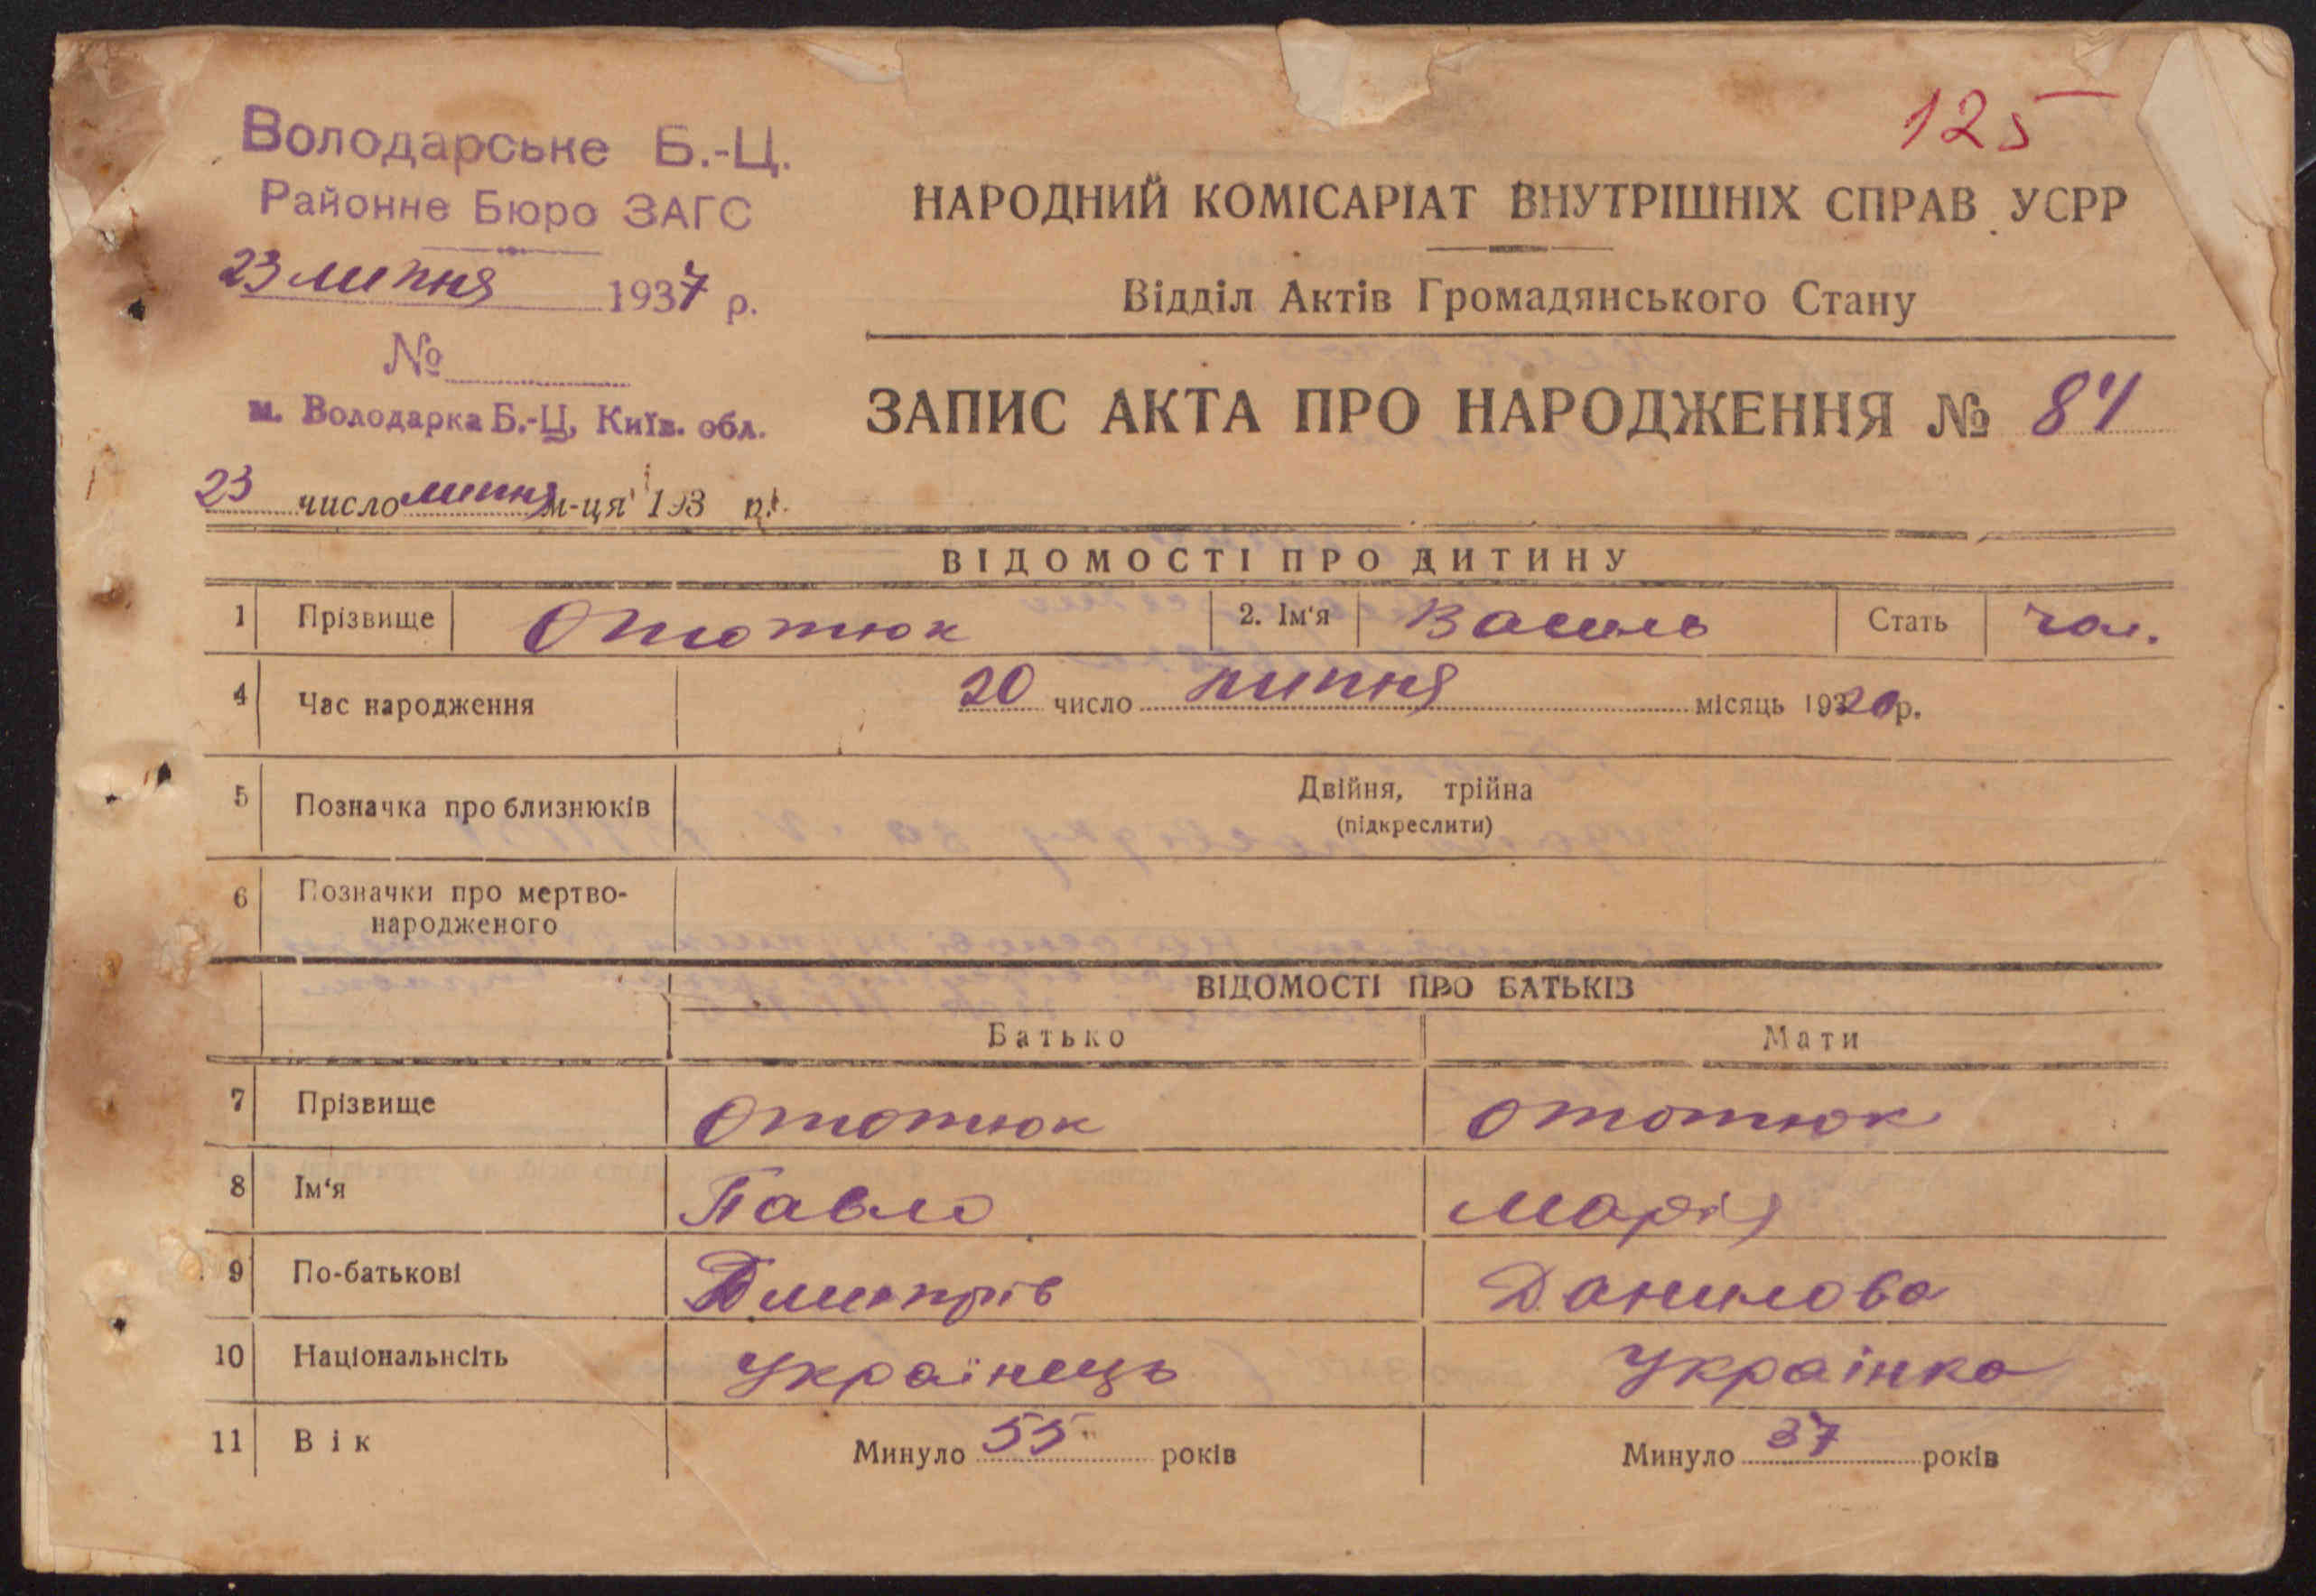 125
Володарське Б.-Ц.
Районне Бюро ЗАГС
23 липня 1937 р.
№
м. Володарка Б.-Ц, Київ. обл.
23 число липня м-ця 193 р.
НАРОДНИЙ КОМІСАРІАТ ВНУТРІШНІХ СПРАВ УСРР
Відділ Актів Громадянського Стану
ЗАПИС АКТА ПРО НАРОДЖЕННЯ № 84
ВІДОМОСТІ ПРО ДИТИНУ
1 Прізвище Отютюк 2. Ім'я Василь Стать чол.
4 Час народження 20 число липня місяць 1920 р.
5 Позначка про близнюків Двійня, трійна
(підкреслити)
6 Позначки про мертво-
народженого
ВІДОМОСТІ ПРО БАТЬКІВ
Батько Мати
7 Прізвище Ототюк Ототюк
8 Ім'я Павло Марія
9 По-батькові Дмитрів Данилова
10 Національнсіть Українець Украінка
11 Вік Минуло 55 років Минуло 37 років